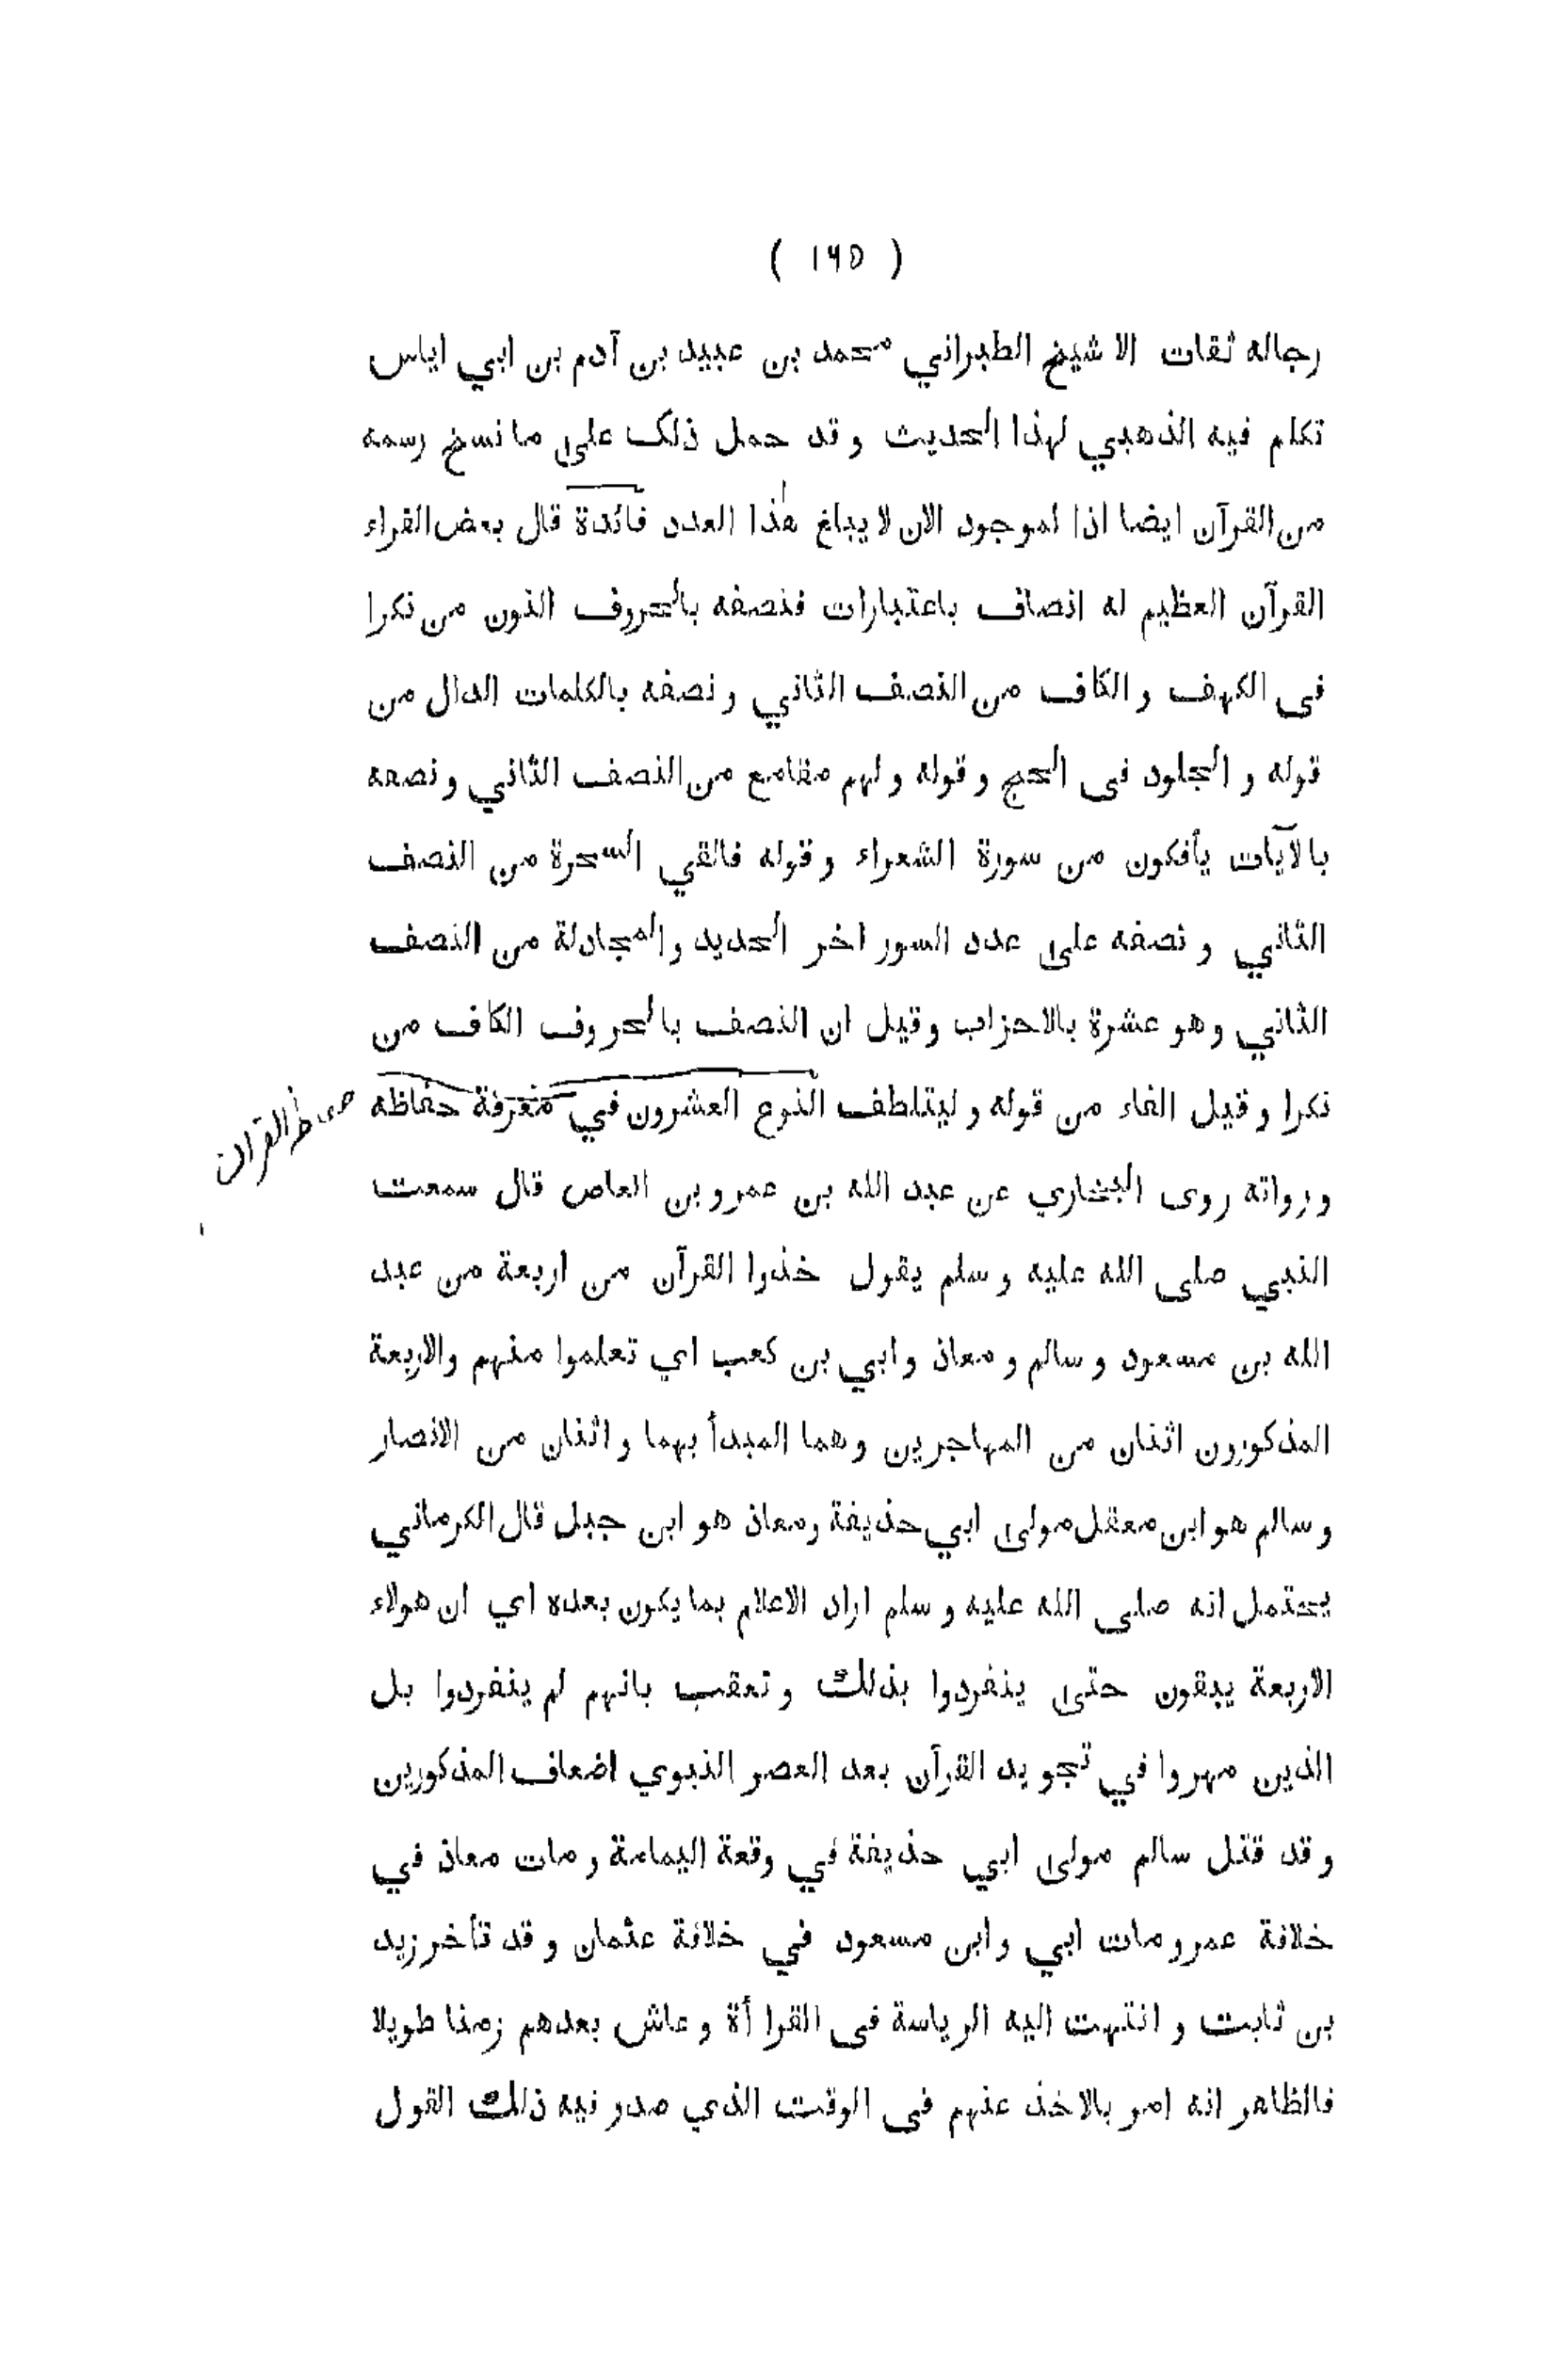 ( ١٦٥ )
رجاله ثقات الا شيخ الطبراني محمد بن عبيد بن آدم بن ابي اياس
تكلم فيه الذهبي لهذا الحديث و قد حمل ذلك على ما نسخ رسمه
من القرآن ايضا اذا لموجود الان لا يبلغ هذا العدد فائدة قال بعض القراء
القرآن العظيم له انصاف باعتبارات فنصفه بالحروف النون من نكرا
فى الكهف و الكاف من النصف الثاني و نصفه بالكلمات الدال من
قوله و الجلود فى الحج و قوله و لهم مقامع من النصف الثاني و نصفه
بالآيات يأفكون من سورة الشعراء و قوله فالقي السحرة من النصف
الثاني و نصفه على عدد السور اخر الحديد و المجادلة من النصف
الثاني و هو عشرة بالاحزاب و قيل ان النصف بالحروف الكاف من
نكرا و قيل الفاء من قوله و ليتلطف النوع العشرون في معرفة حفاظه
القران
و رواته روى البخاري عن عبد الله بن عمرو بن العاص قال سمعت
النبي صلى الله عليه و سلم يقول خذوا القرآن من اربعة من عبد
الله بن مسعود و سالم و معاذ و ابي بن كعب اي تعلموا منهم والاربعة
المذكورون اثنان من المهاجرين و هما المبدأ بهما و اثنان من الانصار
و سالم هو ابن معقل مولى ابي حذيفة و معاذ هو ابن جبل قال الكرماني
يحتمل انه صلى الله عليه و سلم اراد الاعلام بما يكون بعده اي ان هولاء
الاربعة يبقون حتى ينفردوا بذلك و تعقب بانهم لم ينفردوا بل
الذين مهروا في تجويد القرآن بعد العصر النبوي اضعاف المذكورين
و قد قتل سالم مولى ابي حذيفة في وقعة اليمامة و مات معاذ في
خلافة عمر و مات ابي و ابن مسعود في خلافة عثمان و قد تأخر زيد
بن ثابت و انتهت اليه الرياسة فى القرا أة و عاش بعدهم زمنا طويلا
فالظاهر انه امر بالاخذ عنهم فى الوقت الذي صدر فيه ذلك القول